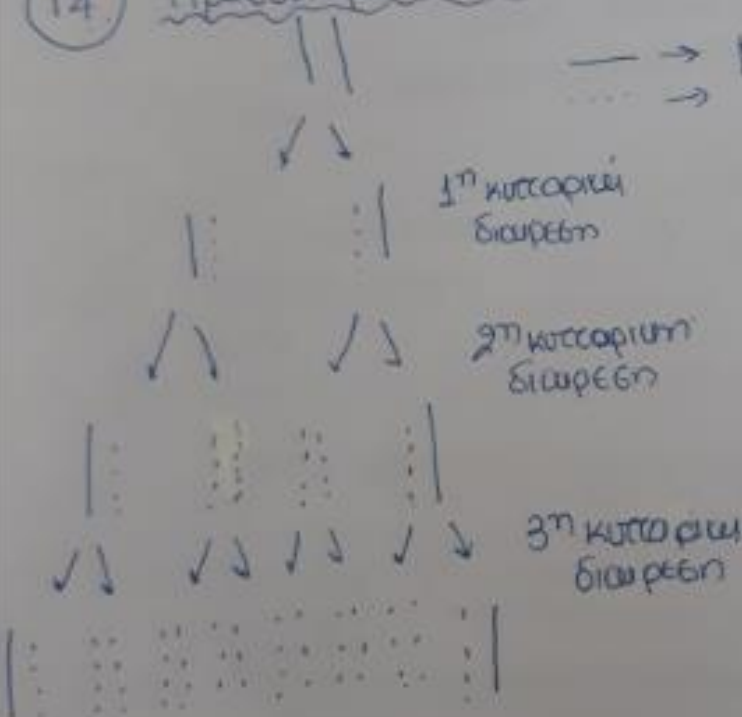 14
1η κυτταρική
διαίρεση
2η κυτταρική
διαίρεση
3η κυτταρική
διαίρεση